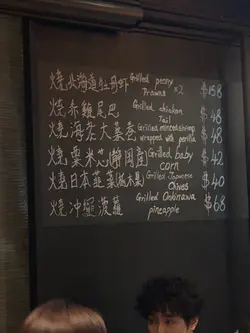 燒北海道牡丹虾 Grilled peony
Prawns ×2 $158
燒赤雞尾巴 Grilled chicken
Tail $48
燒海老大葉卷 Grilled minced shrimp
wrapped with perilla $48
燒粟米芯(静岡産) Grilled baby
corn $42
燒日本韮菜(栃木県) Grilled Japanese
Chives $40
燒沖繩菠蘿 Grilled Okinawa
pineapple $68